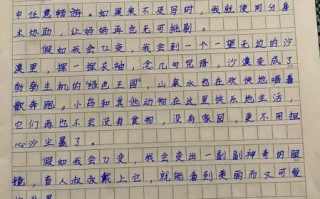 中任意畅游。如果来不及写时，我就使用分身
术协助，让妈妈再也无可挑剔。
假如我会飞变，我会到一个一望无边的沙
漠里，摆一摆长袖，念几句咒语，沙漠变成了
勃勃生机的“绿色王国”，山泉水也在欢快地唱着
歌奔跑。小鸟和其他动物在这里快乐地生活，
它们再也不会没有食物，没有家园，更不用担
心沙尘暴了。
假如我会飞变，我会变出一副副神奇的眼
镜，盲人叔叔戴上它，就能看到美丽而又可爱